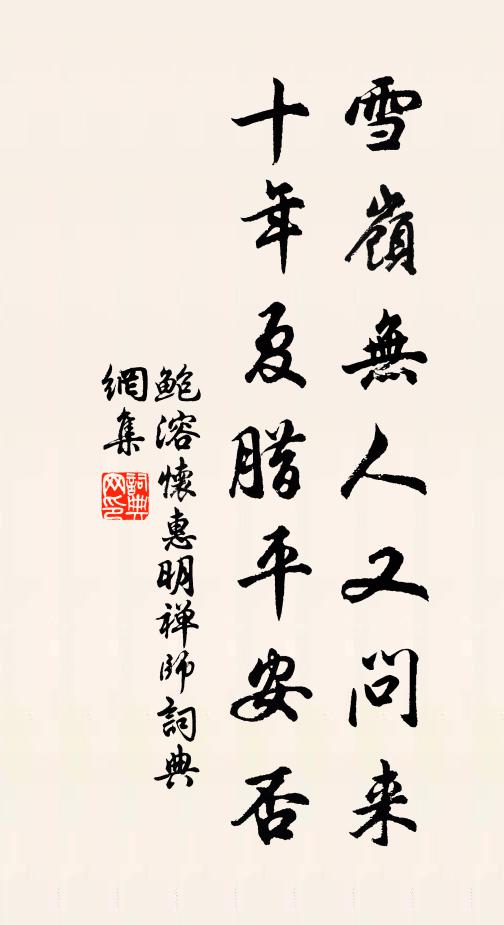 雪嶺無人又問来
十年夏腊平安否
鲍溶懷惠明禅师詞典
網集
詞典
网印